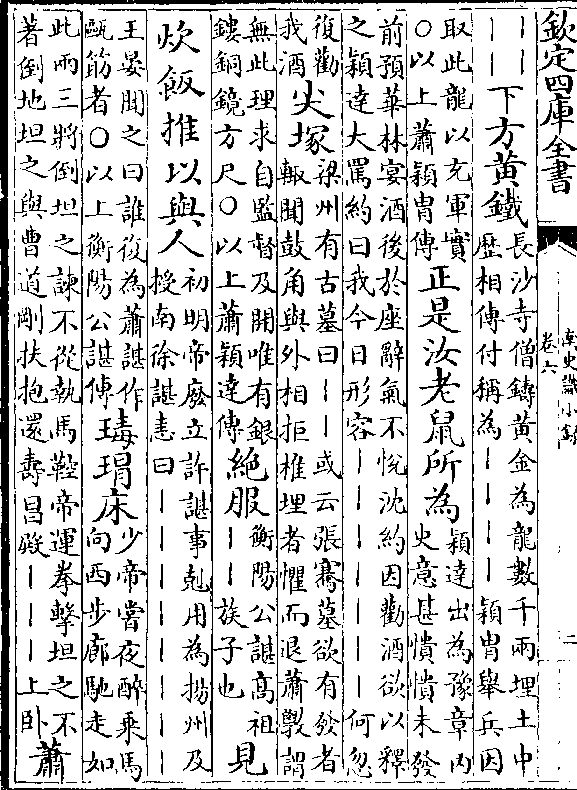 欽定四庫全書
南史識小録
卷六
二
丨丨
丨丨
下方黃鐵
長沙寺僧鑄黃金為龍數千兩埋土中
歴相傳付稱為丨丨丨丨穎胄舉兵因
取此龍以充軍實
○以上蕭穎胄傳
正是汝老鼠所為
穎達出為豫章内
史意甚憒憒未發
前預華林宴酒後於座辭氣不悦沈約因勸酒欲以釋
之穎達大罵約曰我今日形容丨丨丨丨丨丨丨何忽
復勸
我酒
尖塚
梁州有古墓曰丨丨或云張騫墓欲有發者
輙聞鼓角與外相拒椎埋者懼而退蕭斅謂
無此理求自監督及開唯有銀
鏤銅鏡方尺○以上蕭穎達傳
絶服
衡陽公諶高祖
丨丨族子也
見
炊飯推以與人
初明帝廢立許諶事剋用為揚州及
授南徐諶恚曰丨丨丨丨丨丨丨
王晏聞之曰誰復為蕭諶作
甌筯者○以上衡陽公諶傳
瑇瑁床
少帝嘗夜醉乘馬
向西步廊馳走如
此兩三將倒坦之諫不從執馬鞚帝運拳擊坦之不
著倒地坦之與曹道剛扶抱還壽昌殿丨丨丨上卧
蕭